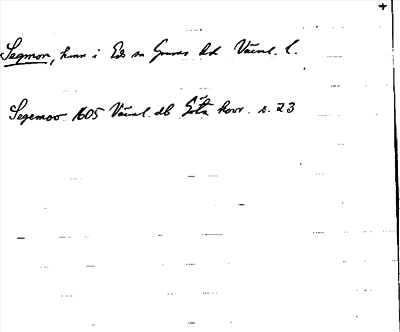 Segmon, hmn i Eds sn Grums hd Värml. l.
Segemoo 1605 Värml. db Göta hovr. s. 23